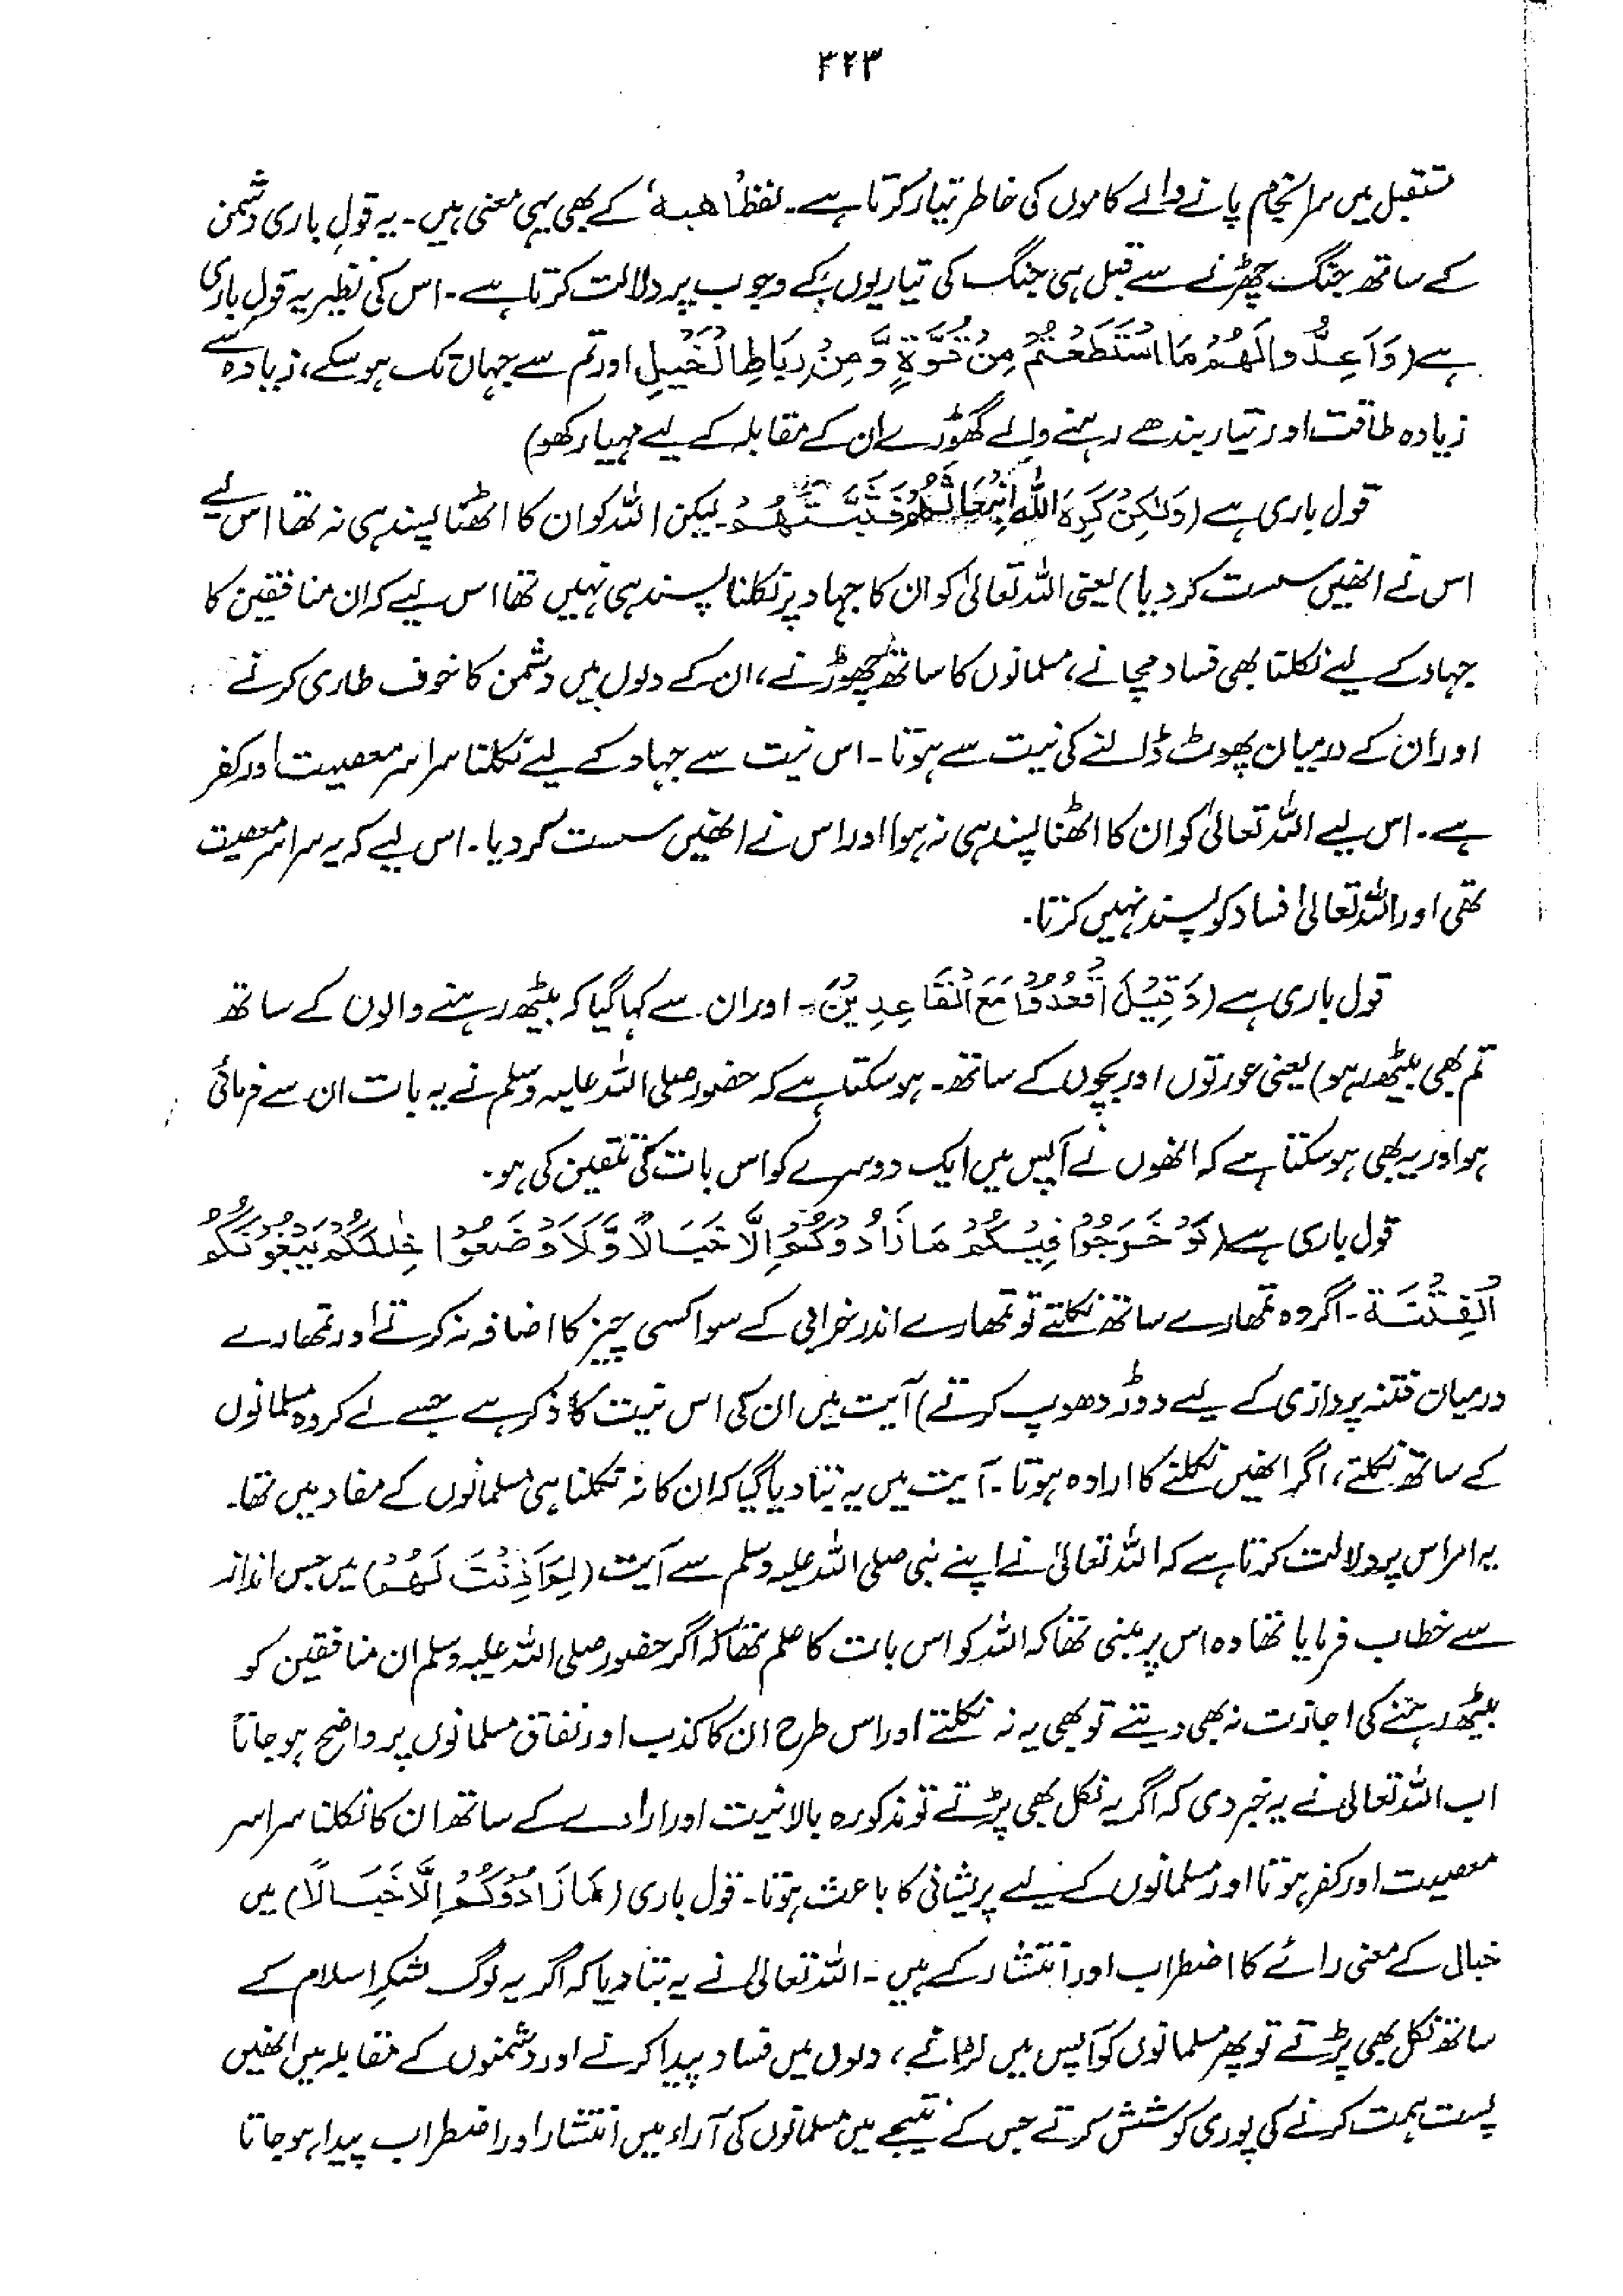 ۳۲۳
مستقبل میں سرانجام پانے والے کاموں کی خاطر تیار کرتا ہے۔ لفظ 'اھبہ' کے بھی یہی معنی ہیں۔ یہ قول باری دشمن
کے ساتھ جنگ چھڑنے سے قبل ہی جنگ کی تیاریوں کے وجوب پر دلالت کرتا ہے۔ اس کی نظیر یہ قول باری
ہے (وَاَعِدُّوا لَهُمْ مَا اسْتَطَعْتُمْ مِنْ قُوَّةٍ وَّمِنْ رِبَاطِ الْخَيْلِ اور تم سے جہاں تک ہو سکے، زیادہ سے
زیادہ طاقت اور تیار بندھے رہنے والے گھوڑے ان کے مقابلہ کے لیے مہیا رکھو)
قول باری ہے (وَلٰكِنْ كَرِهَ اللهُ انْبِعَاثَهُمْ فَثَبَّطَهُمْ۔ لیکن اللہ کو ان کا اٹھنا پسند ہی نہ تھا اس لیے
اس نے انھیں سست کر دیا) یعنی اللہ تعالیٰ کو ان کا جہاد پر نکلنا پسند ہی نہیں تھا اس لیے کہ ان منافقین کا
جہاد کے لیے نکلنا بھی فساد مچانے، مسلمانوں کا ساتھ چھوڑنے، ان کے دلوں میں دشمن کا خوف طاری کرنے
اور ان کے درمیان پھوٹ ڈالنے کی نیت سے ہوتا۔ اس نیت سے جہاد کے لیے نکلنا سراسر معصیت اور کفر
ہے۔ اس لیے اللہ تعالیٰ کو ان کا اٹھنا پسند ہی نہ ہوا اور اس نے انھیں سست کر دیا۔ اس لیے کہ یہ سراسر معصیت
تھی اور اللہ تعالیٰ فساد کو پسند نہیں کرتا۔
قول باری ہے (وَقِيْلَ اقْعُدُوْا مَعَ الْقَاعِدِيْنَ۔ اور ان سے کہا گیا کہ بیٹھ رہنے والوں کے ساتھ
تم بھی بیٹھ رہو) یعنی عورتوں اور بچوں کے ساتھ۔ ہو سکتا ہے کہ حضور صلی اللہ علیہ وسلم نے یہ بات ان سے فرمائی
ہو اور یہ بھی ہو سکتا ہے کہ انھوں نے آپس میں ایک دوسرے کو اس بات کی تلقین کی ہو۔
قول باری ہے (لَوْ خَرَجُوْا فِيْكُمْ مَا زَادُوْكُمْ اِلَّا خَبَالًا وَّلَاَوْضَعُوْا خِلٰلَكُمْ يَبْغُوْنَكُمُ
الْفِتْنَةَ۔ اگر وہ تمھارے ساتھ نکلتے تو تمھارے اندر خرابی کے سوا کسی چیز کا اضافہ نہ کرتے اور تمھارے
درمیان فتنہ پردازی کے لیے دوڑ دھوپ کرتے) آیت میں ان کی اس نیت کا ذکر ہے جسے لے کر وہ مسلمانوں
کے ساتھ نکلتے، اگر انھیں نکلنے کا ارادہ ہوتا۔ آیت میں یہ بتا دیا گیا کہ ان کا نہ نکلنا ہی مسلمانوں کے مفاد میں تھا۔
یہ امر اس پر دلالت کرتا ہے کہ اللہ تعالیٰ نے اپنے نبی صلی اللہ علیہ وسلم سے آیت (لِمَ اَذِنْتَ لَهُمْ) میں جس انداز
سے خطاب فرمایا تھا وہ اس پر مبنی تھا کہ اللہ کو اس بات کا علم تھا کہ اگر حضور صلی اللہ علیہ وسلم ان منافقین کو
بیٹھ رہنے کی اجازت نہ بھی دیتے تو بھی یہ نہ نکلتے اور اس طرح ان کا کذب اور نفاق مسلمانوں پر واضح ہو جاتا
اب اللہ تعالیٰ نے یہ خبر دی کہ اگر یہ نکل بھی پڑتے تو مذکورہ بالا نیت اور ارادے کے ساتھ ان کا نکلنا سراسر
معصیت اور کفر ہوتا اور مسلمانوں کے لیے پریشانی کا باعث ہوتا۔ قول باری (مَا زَادُوْكُمْ اِلَّا خَبَالًا) میں
خبال کے معنی رائے کا اضطراب اور انتشار کے ہیں۔ اللہ تعالیٰ نے یہ بتا دیا کہ اگر یہ لوگ لشکرِ اسلام کے
ساتھ نکل بھی پڑتے تو پھر مسلمانوں کو آپس میں لڑانے، دلوں میں فساد پیدا کرنے اور دشمنوں کے مقابلہ میں انھیں
پست ہمت کرنے کی پوری کوشش کرتے جس کے نتیجے میں مسلمانوں کی آراء میں انتشار اور اضطراب پیدا ہو جاتا